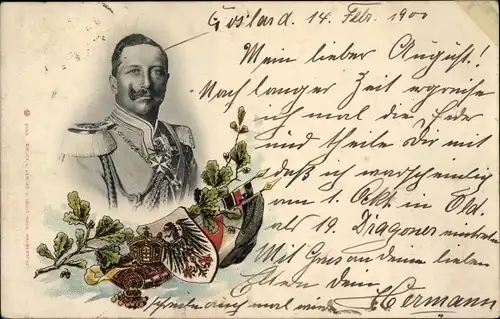 Goslard. 14. Febr. 1900
Mein lieber August!
Nach langer Zeit ergreife
ich mal die Feder
und theile Dir mit
daß ich warscheinlig
am 1. Okt. in Old.
als 19. Dragoner eintrete
Mit Grus an deine lieben
Eltern dein Hermann
schreibe auch mal wieder